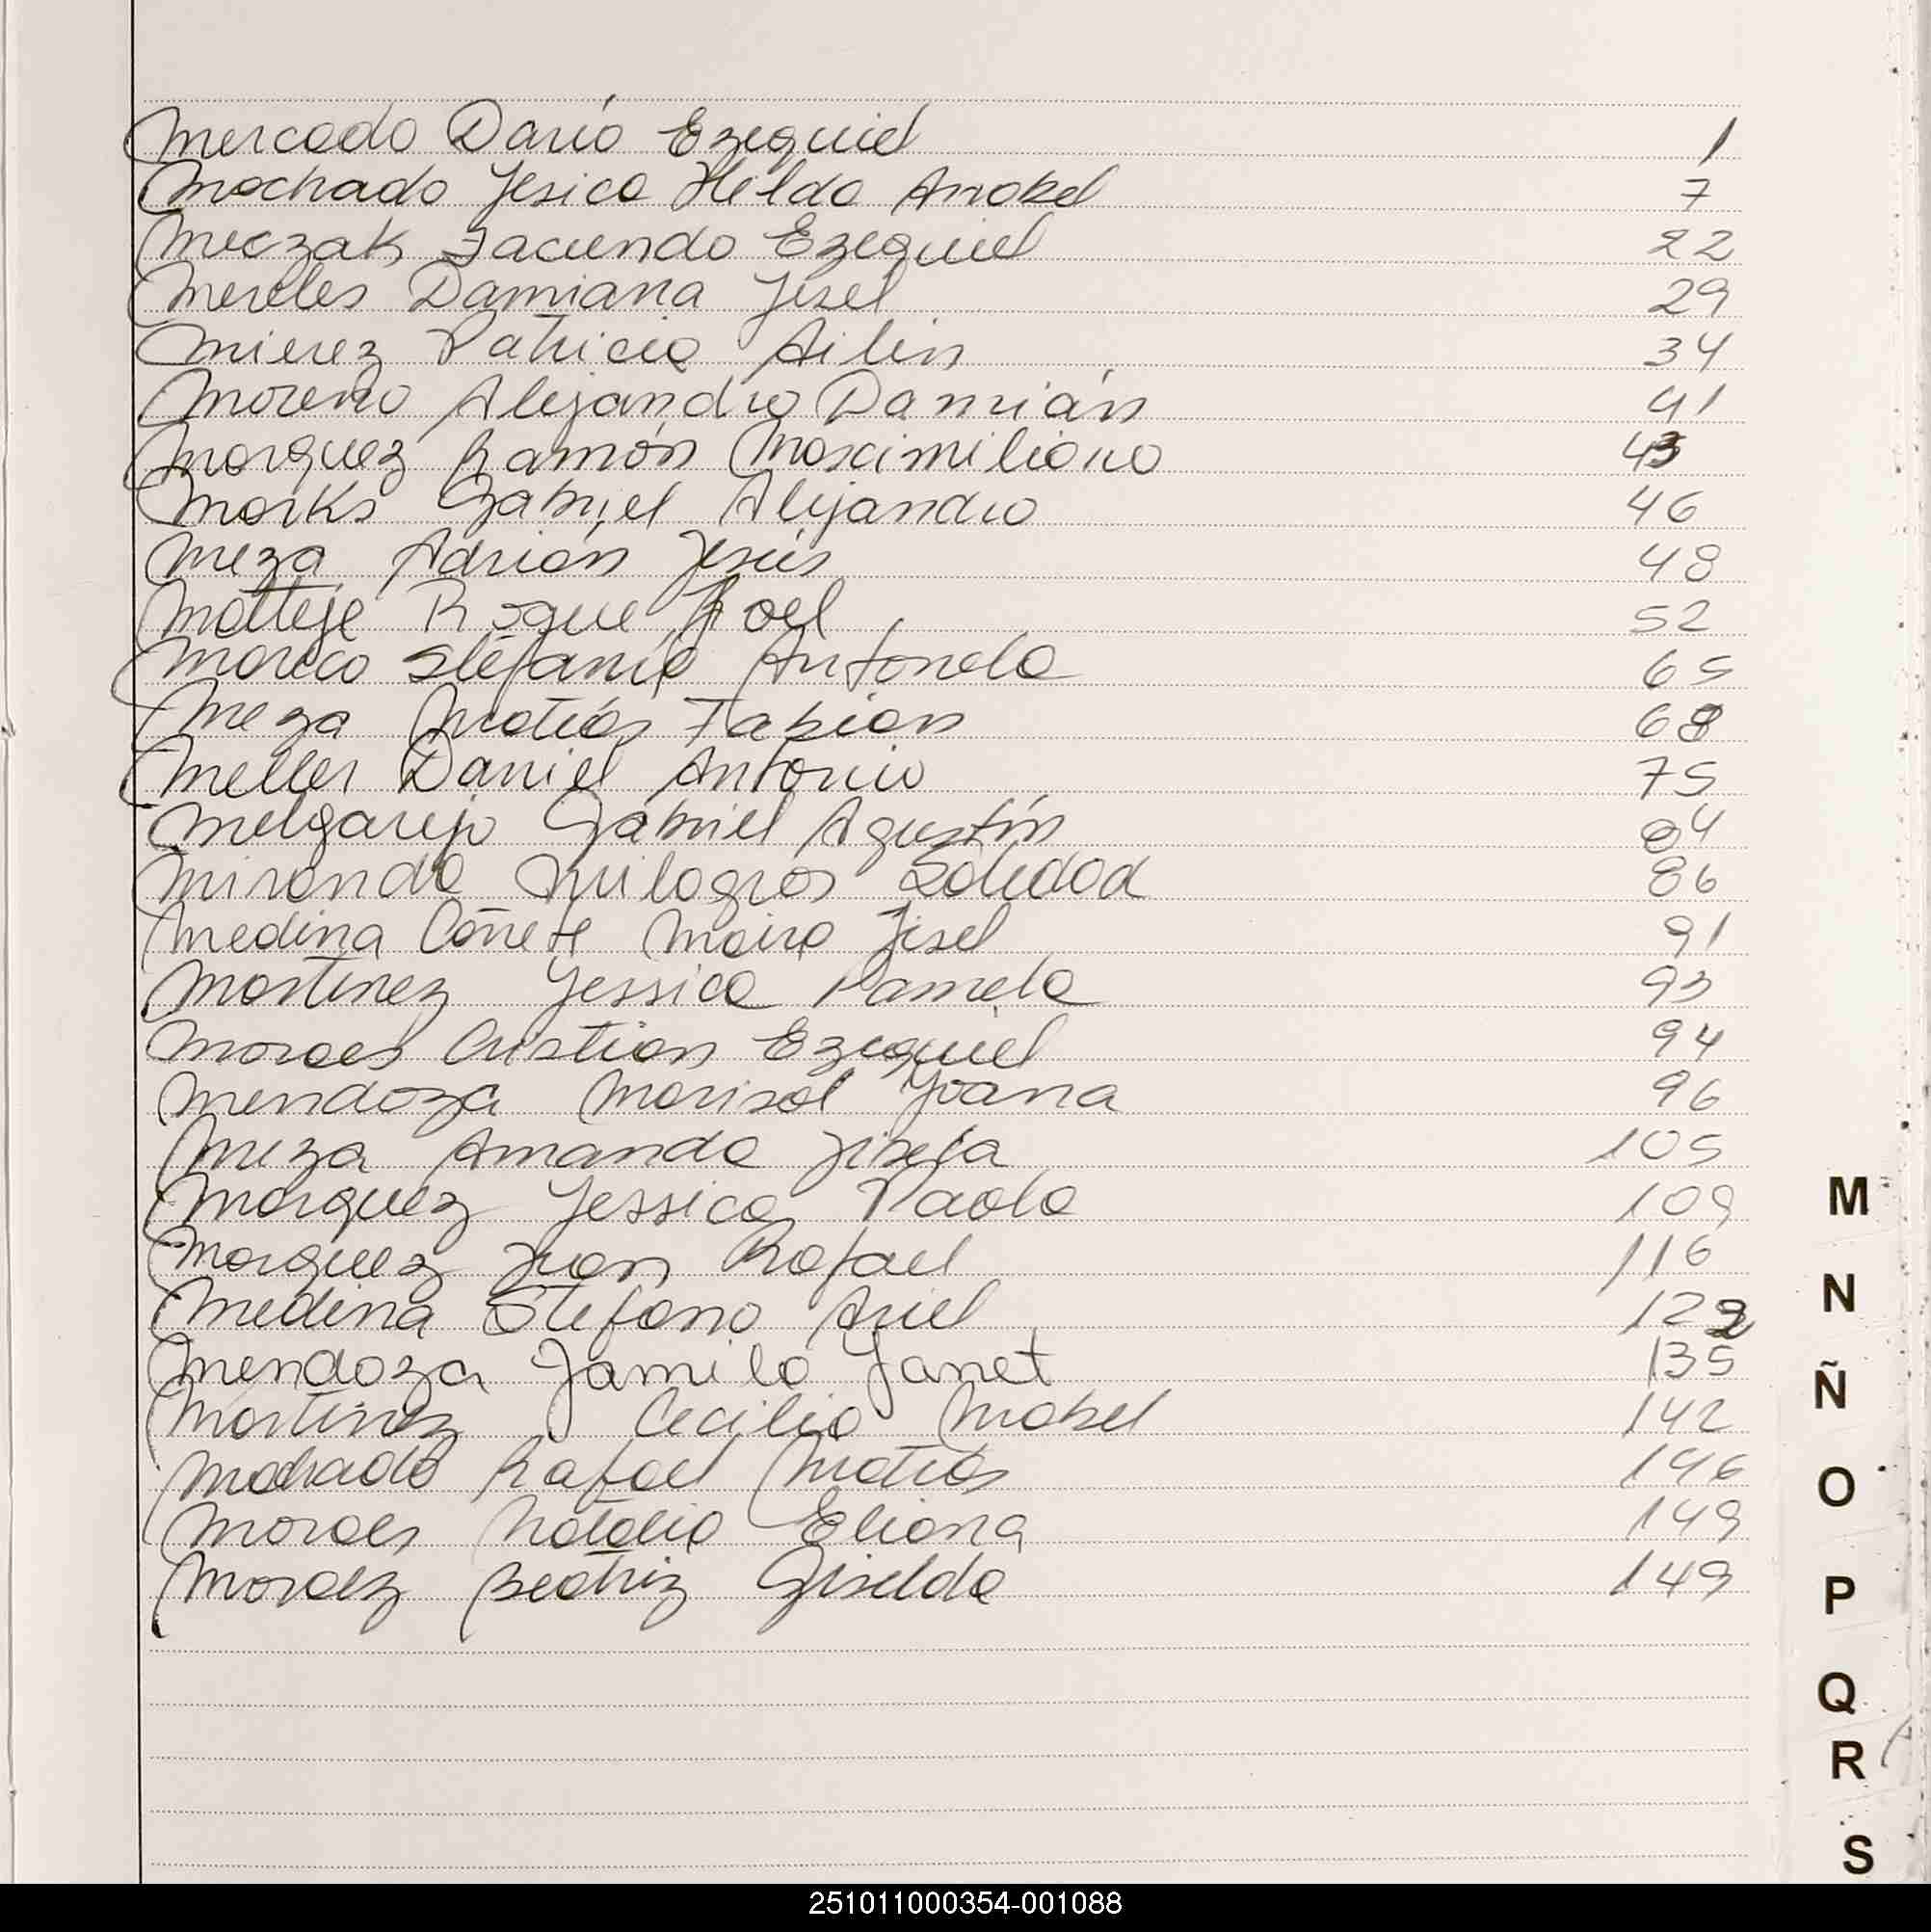 Mercado Darío Ezequiel 1
Machado Yesica Hilda Anabel 7
Meczak Facundo Ezequiel 22
Mereles Damiana Yisel 29
Mierez Patricia Ailin 34
Moreno Alejandro Damián 41
Marquez Ramón Maximiliano 43
Marks Gabriel Alejandro 46
Meza Adrián Jesús 48
Matteje Roque Noel 52
Mareco Stefania Antonela 65
Meza Matías Fabian 68
Meller Daniel Antonio 75
Melgarejo Gabriel Agustín 84
Miranda Milagros Soledad 86
Medina Cañete Maira Jisel 91
Martinez Yessica Pamela 93
Moraes Cristian Ezequiel 94
Mendoza Marisol Yoana 96
Meza Amanda Jisela 105
Marquez Yessica Paola 109
Marquez Juan Rafael 116
Medina Stefano Ariel 122
Mendoza Jamila Janet 135
Martinez Cecilia Mabel 142
Machado Rafael Matías 146
Moraes Natalia Eliana 149
Moraez Beatriz Giselda 149
M
N
Ñ
O
P
Q
R
S
251011000354-001088